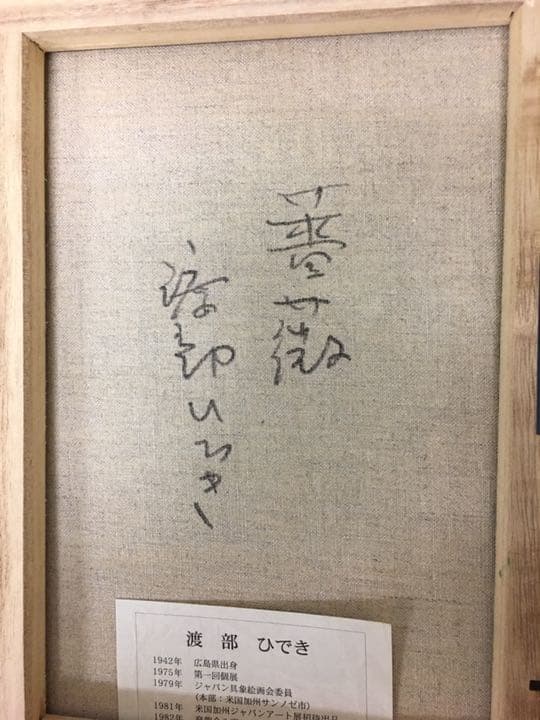 薔薇
渡部ひでき
渡部 ひでき
1942年 広島県出身
1975年 第一回個展
1979年 ジャパン具象絵画会委員
(本部:米国加州サンノゼ市)
1981年 米国加州ジャパンアート展招待出品
1982年